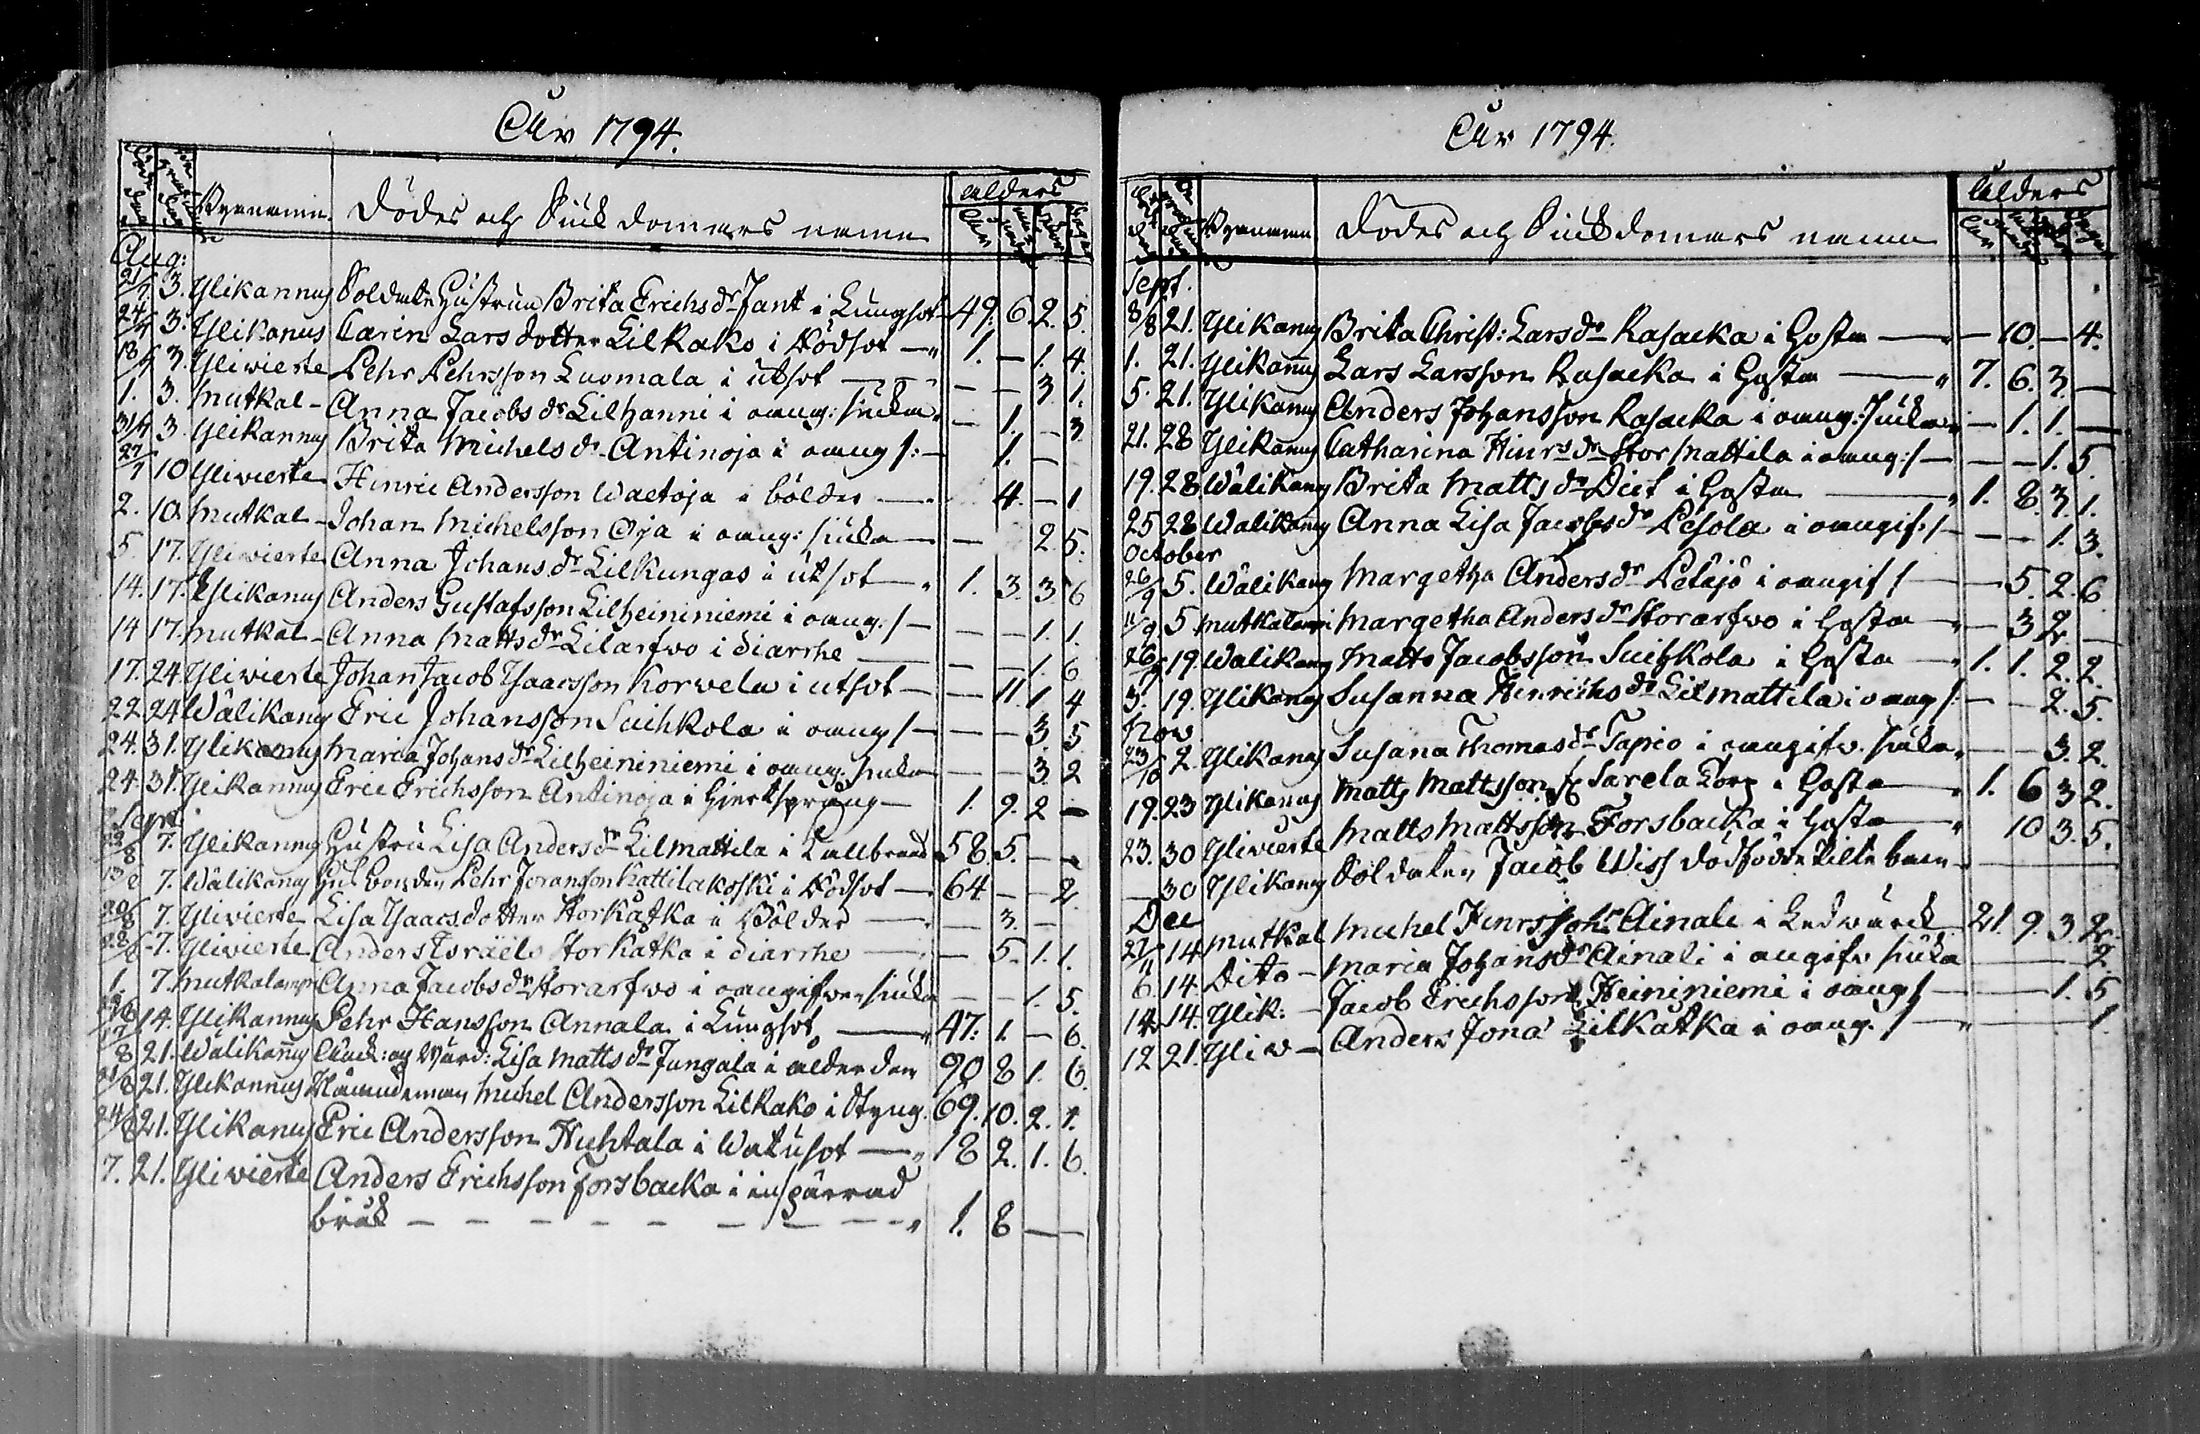 Åhr 1794.
Bynamn. Dödes och Siuk domars namn ålders
Åhr
Aug:
21/7 3. Ylikannus Soldate Hustrun Brita Erichs dr Jant i Lungsot 49. 6. 2. 5.
24/7 3. Ylikanus Carin Lars dotter Lilkako i Rödsot — 1. — 1. 4.
13/7 3. Yliwierte Pehr Pehrsson Luomala i utsot — — — 3. 1.
1. 3. Mutkal — Anna Jacobs dr Lilhanni i oang: siuka — 1. — 3
31/7 3. Ylikannus Brita Michels dr Antinoja i oang s: — 1. —
27/7 10 Yliwierte Hinric Andersson Waetoja i bölder — 4. — 1
2. 10. Mutkal — Johan Michelsson Oja i oang: siuka — — 2. 5.
5. 17. Yliwierte Anna Johans dr Lilkungas i utsot — 1. 3. 3. 6
14. 17. Ylikanus Anders Gustafsson Lilheininiemi i oang: s — — — 1. 1.
14 17. Mutkal — Anna Matts dr Lilarfwo i diarrhe — — — 1. 6
17. 24 Yliwierte Johan Jacob Isaacsson Korwela i utsot — — 11. 1. 4
22. 24 Wälikang Eric Johansson Suihkola i oang s — — — 3. 5
24. 31. Ylikannus Maria Johans dr Lilheininiemi i oang. siuka — — 3. 2
24. 31. Ylikannus Eric Erichsson Antinoja i Hiertsprång — 1. 9. 2 —
Sept:
7. Ylikannus Hustru Lisa Anders dr Lilmattila i Kallbrand 58. 5. — —
13/8 7. Wälikang Husbonden Pehr Joransson Kattilakoski i Rödsot — 64 — — 2.
20/8 7. Yliwierte Lisa Isaacs dotter Storkatka i Bölder — — 3. —
28/8 7. Yliwierte Anders Israels Storkatka i diarrhe — — 5. 1. 1.
1. 7. Mutkalampi Anna Jacobs dr Storarfwo i oangifwen siuka — — 1. 5.
14. Ylikannus Pehr Hansson Annala i Lungsot — 47. 1. — 6.
17/8 21. Wälikannus Lisa Matts dr Jungala i ålderdom 90 8 1. 6.
21/8 21. Ylikannus Nämndeman Michel Andersson Lilkako i Styng. 69. 10. 2. 1.
24/8 21. Ylikanus Eric Andersson Huhtala i Watusot — 18 2. 1. 6.
7. 21. Yliwierte Anders Erichsson Forsbacka i inspärrad
bråck — — — — — — — 1. 8 — —
Åhr 1794.
Bynamn Dödes och Siukdomars namn Ålders
Åhr
Sept.
8/8 21. Ylikanus Brita Christ: Lars dr Rasacka i Hosta — — 10. — 4.
1. 21. Ylikanus Lars Larsson Rasacka i Hosta — 7. 6. 3. —
5. 21. Ylikanus Anders Johansson Rasacka i oang: siuka — 1. 1. —
21. 28 Ylikanus Catharina Hinrs dr Stor Mattila i oang: s — — — 1. 5
19. 28 Wälikang Brita Matts dr Diet i Hosta — 1. 8. 3. 1.
25 28 Walikang Anna Lisa Jacobs dr Pesola i oangif: s — — — 1. 3.
October
26/9 5. Wälikang Margetha Anders dr Petäjö i oangif s — — 5. 2. 6.
11/9 5 Mutkalampi Margetha Anders dr Storarfwo i Hosta — — 3 2 —
26/9 19. Walikang Matts Jacobsson Suihkola i Hosta — 1. 1. 2. 2.
3. 19. Ylikang Susanna Hinrichs dr Lilmattila i oang s: — — 2. 5.
Nov
23/10 2. Ylikang Susana Thomas dr Tapio i oangifw. siuka — — 3. 2.
19. 23 Ylikanus Matts Mattsson Sarela Torp i Hosta — 1. 6 3 2.
23. 30 Yliwierte Matts Mattsson Forsbacka i Hosta — 10 3. 5.
— 30 Ylikang Soldaten Jacob Wiss dödfödde barn — — — —
Dec
27/11 14 Mutkal Michel Hinrssohn Ainali i Ledwärck 21. 9. 3. 2
6. 14. Dito — Maria Johans dr Ainali i angifw siuka — — — 2.
14. 14. Ylik: — Jacob Erichsson Heininiemi i oang s — — — 1. 5
12 21. Yliw — Anders Jona Lilkatka i oang. s — — — — 1.